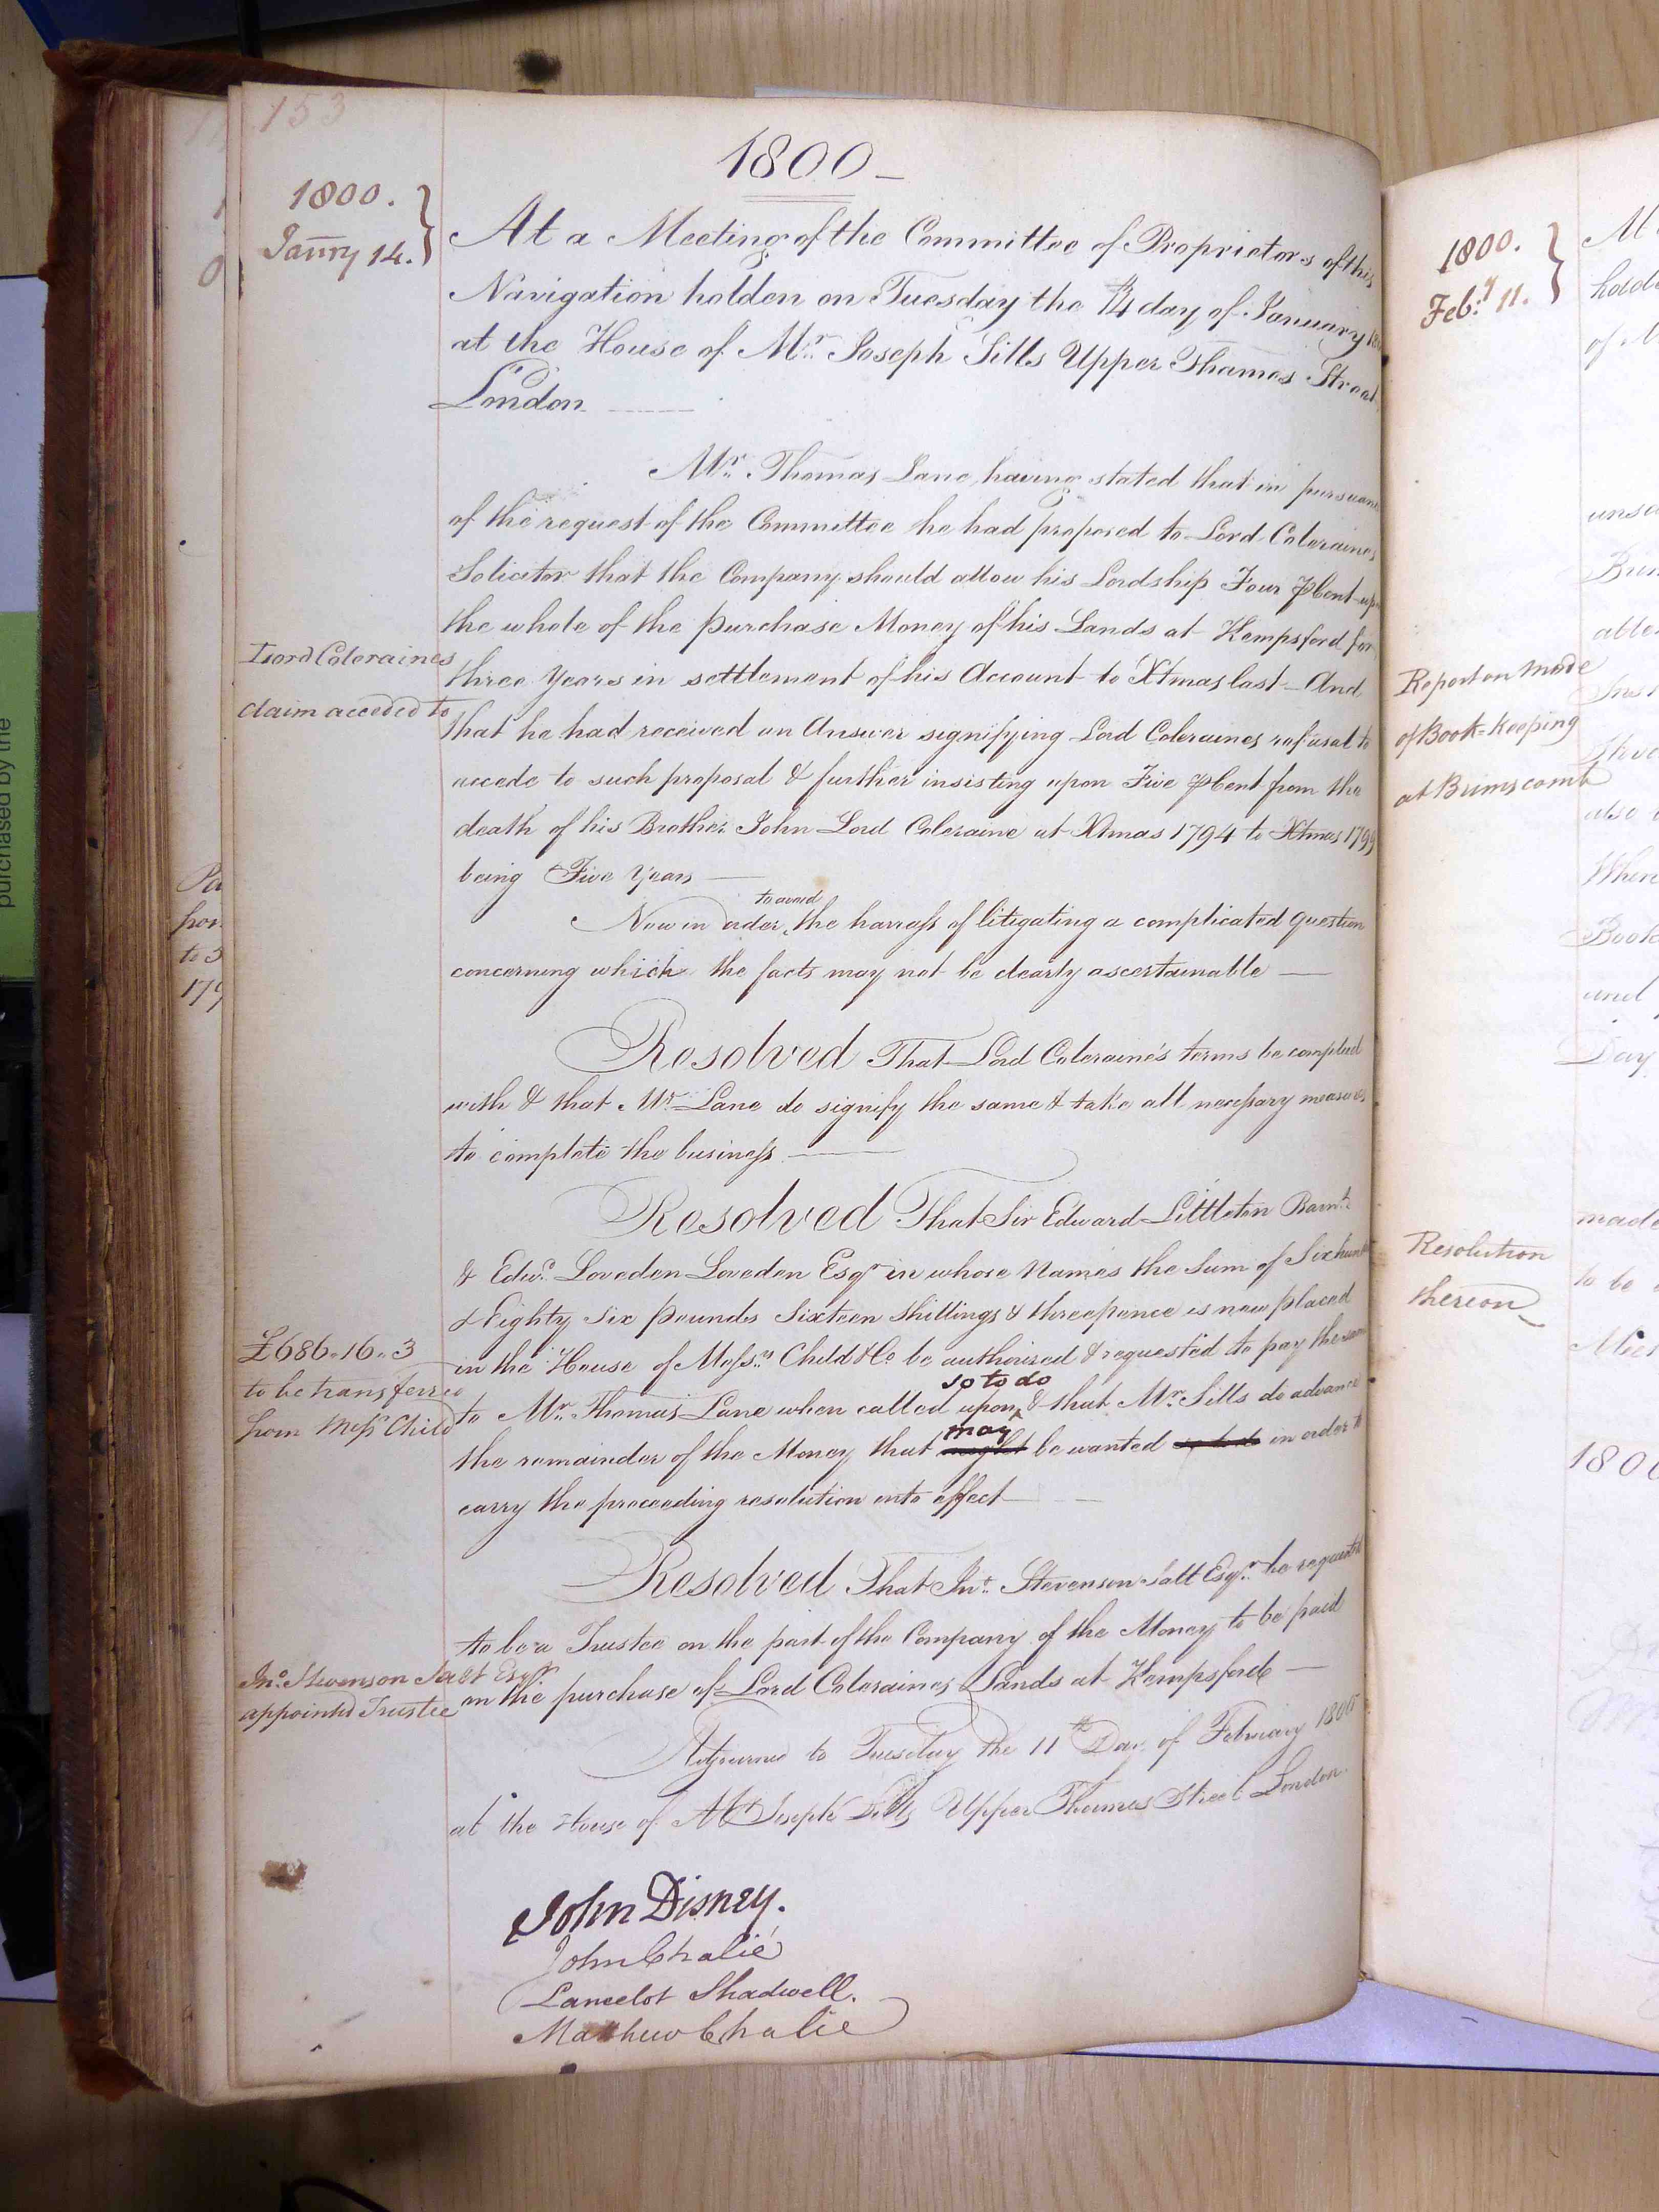 153
1800
1800.
Janry 14.
At a Meeting of the Committee of Proprietors of this
Navigation holden on Tuesday the 14th day of January
at the House of Mr. Joseph Sills Upper Thames Street
London
Mr. Thomas Lane having stated that in pursuance
of the request of the Committee he had proposed to Lord Coleraines
Solicitor that the Company should allow his Lordship Four ⅌Cent upon
the whole of the purchase Money of his Lands at Kempsford for
Lord Coleraines
claim acceded to
three Years in settlement of his Account to Xtmas last - And
that he had received an Answer signifying Lord Coleraines refusal to
accede to such proposal & further insisting upon Five ⅌Cent from the
death of his Brother John Lord Coleraine at Xtmas 1794 to Xtmas 1799
being Five Years
Now in order to avoid the harrass of litigating a complicated Question
concerning which the facts may not be clearly ascertainable
Resolved That Lord Coleraine's terms be complied
with & that Mr. Lane do signify the same & take all necessary measures
to complete the business
Resolved That Sir Edward Littleton Barnt.
& Edwd. Loveden Loveden Esqr. in whose Names the Sum of Six hundred
& Eighty Six Pounds Sixteen Shillings & threepence is now placed
£686-16-3
to be transferred
from Messrs Child
in the House of Messrs. Child & Co be authorized & requested to pay the same
to Mr. Thomas Lane when called upon so to do & that Mr. Sills do advance
the remainder of the Money that might may be wanted so to do in order to
carry the preceeding resolution into effect
Resolved That Jno. Stevenson Salt Esqr. be requested
to be a Trustee on the part of the Company of the Money to be paid
Jno. Stevenson Salt Esqr
appointed Trustee
on the purchase of Lord Coleraines Lands at Kempsford
Adjourned to Tuesday the 11th Day of February 1800
at the House of Mr Joseph Sills Upper Thames Street London.
John Disney.
John Chalié
Lancelot Shadwell.
Mathew Chalie
1800.
Feby. 11.
Report on Mode
of Book-keeping
at Brimscomb
Resolution
thereon
made
to be
purchased by the